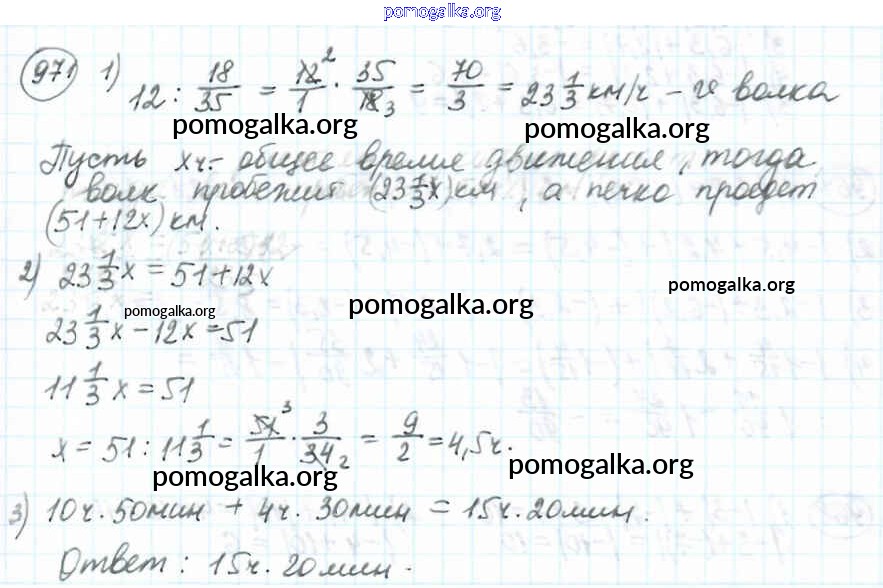 pomogalka.org
971 1) 12 : 18/35 = 12/1 · 35/18 = 70/3 = 23 1/3 км/ч – υ волка
pomogalka.org pomogalka.org
Пусть x ч.– общее время движения, тогда
волк пробежит (23 1/3 x) км, а печка проедет
(51+12x) км.
2) 23 1/3 x = 51+12x
pomogalka.org
pomogalka.org pomogalka.org
23 1/3 x – 12x = 51
11 1/3 x = 51
x = 51 : 11 1/3 = 51/1 · 3/34 = 9/2 = 4,5 ч.
pomogalka.org pomogalka.org
3) 10 ч. 50 мин + 4 ч. 30 мин = 15 ч. 20 мин.
Ответ : 15 ч. 20 мин.